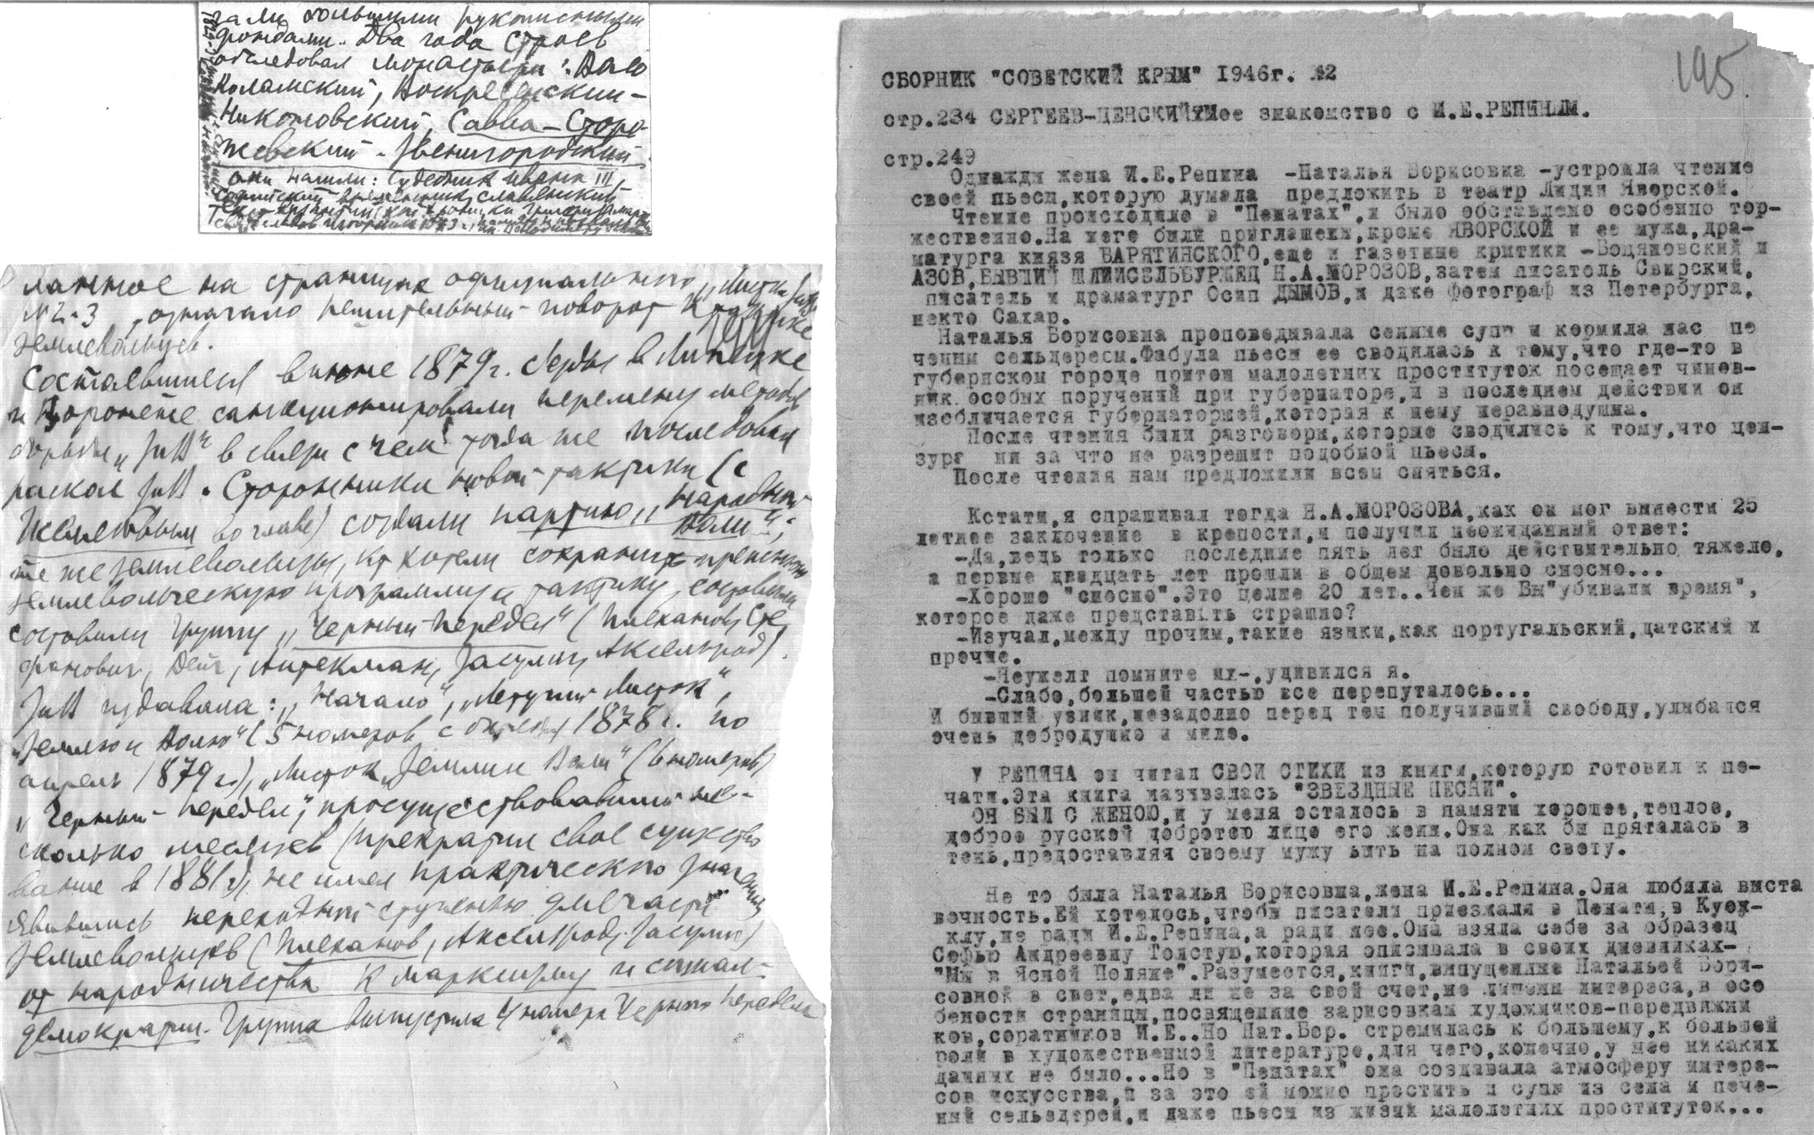 зали большими рукописными
фондами. Два года Строев
обследовал монастыри: Воло
Коламский, Воскресенский-
Никоновский, Савва-Сторо-
жевский-Звенигородский
они нашли: Судебник Ивана III
ланное на страницах официального „Листка
№2-3, означало решительный поворот к
землевольцев.
Состоявшиеся в июне 1879г. съезды в Липецке
и Воронеже санкционировали перемену методов
борьбы „ЗиВ" в связи с чем тогда же последовал
раскол ЗиВ. Сторонники новой тактики (с
Желябовым во главе) создали партию „Народной
Воли";
те же землевольцы, кт хотели сохранить прежнюю
землевольческую программу и тактику,
составили группу „Черный передел" (Плеханов, Сте
фанович, Дейч, Аптекман, Засулич, Аксельрод).
ЗиВ издавала: „Начало", „Летучий Листок",
„Землю и Волю" (5 номеров с октября 1878г. по
апрель 1879г.), „Листок „Земли и Воли" (6 номеров)
„Черный-передел", просуществовавший не-
сколько месяцев (прекратил свое существо
вание в 1881г), не имел практического значения
явившись переходной ступенью для части
землевольцев (Плеханов, Аксельрод, Засулич)
от народничества к марксизму и социал-
демократии. Группа выпустила 4 номера Черного передела
195
СБОРНИК "СОВЕТСКИЙ КРЫМ" 1946г. №2
стр.234 СЕРГЕЕВ-ЦЕНСКИЙ Мое знакомство с И.Е.РЕПИНЫМ.
стр.249
Однажды жена И.Е.Репина -Наталья Борисовка -устроила чтение
своей пьесы,которую думала предложить в театр Лидии Яворской.
Чтение происходило в "Пенатах",и было обставлено особенно тор-
жественно.На него были приглашены,кроме ЯВОРСКОЙ и ее мужа,дра-
матурга князя БАРЯТИНСКОГО,еще и газетные критики -Боцяновский и
АЗОВ,БЫВШИЙ ШЛИИСЕЛЬБУРЖЕЦ Н.А.МОРОЗОВ,затем писатель Свирский,
писатель и драматург Осип ДЫМОВ,и даже фотограф из Петербурга,
некто Сахар.
Наталья Борисовна проповедывала сенные супы и кормила нас пе
ченым сельдереем.Фабула пьесы ее сводилась к тому,что где-то в
губернском городе притон малолетних проституток посещает чинов-
ник особых поручений при губернаторе,и в последнем действии он
изобличается губернаторшей,которая к нему неравнодушна.
После чтения были разговоры,которые сводились к тому,что цен-
зура ни за что не разрешит подобной пьесы.
После чтения нам предложили всем сняться.
Кстати,я спрашивал тогда Н.А.МОРОЗОВА,как он мог вынести 25
летнее заключение в крепости,и получил неожиданный ответ:
-Да,ведь только последние пять лет было действительно тяжело,
а первые двадцать лет прошли в общем довольно сносно...
-Хорошо "сносно".Это целые 20 лет..Чем же Вы"убивали время",
которое даже представить страшно?
-Изучал,между прочим,такие языки,как португальский,датский и
прочие.
-Неужелт помните их-,удивился я.
-Слабо,большей частью все перепуталось...
И бывший узник,незадолго перед тем получивший свободу,улыбался
очень добродушно и мило.
У РЕПИНА он читал СВОИ СТИХИ из книги,которую готовил к пе-
чати.Эта книга называлась "ЗВЕЗДНЫЕ ПЕСНИ".
ОН БЫЛ С ЖЕНОЮ,и у меня осталось в памяти хорошее,теплое,
доброе русской добротою лицо его жены.Она как бы пряталась в
тень,предоставляя своему мужу быть на полном свету.
Не то была Наталья Борисовна,жена И.Е.Репина.Она любила выста
вочность.Ей хотелось,чтобы писатели приезжали в Пенаты,в Куок-
клу,не ради И.Е.Репина,а ради нее.Она взяла себе за образец
Софью Андреевну Толстую,которая описывала в своих дневниках-
"Мы в Ясной Поляне".Разумеется,книги,выпущенные Натальей Бори-
совной в свет,едва ли не за свой счет,не лишены интереса,в осо
бености страницы,посвященные зарисовкам художников-передвижни
ков,соратников И.Е..Но Нат.Бор. стремилась к большему,к большей
роли в художественной литературе,для чего,конечно,у нее никаких
данных не было...Но в "Пенатах" она создавала атмосферу интере-
сов искусства,и за это ей можно простить и супы из сена и пече-
ный сельдерей,и даже пьесы из жизни малолетних проституток...